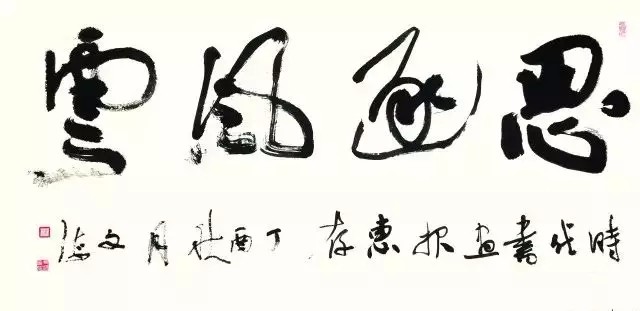 思逐風雲
時代書画报惠存 丁酉秋月文